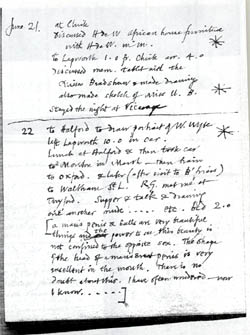 June 21. at Chick
Discussed H de W African house furniture
with H de W. m. m.
to Lapworth 1.0 p. Chick arr. 4.0
Discussed room. tablet and the
Bradshaw & made drawing
also made sketch of Miss U. B.
Stayed the night at
22 to Halford to draw portrait of W. Wyse
left Lapworth 10.0 in car.
Lunch at Halford & then took car
to Morton in Marsh – then train
to Oxford. & later (after visit to B' friars)
to Waltham St L. R.G. met me at
Twyford. Supper & talk & drawing
one another made ..... etc. bed 2.0
[a man's penis & balls are very beautiful
things and the power to see this beauty is
not confined to the opposite sex. The shape
of the head of a man's erect penis is very
excellent in the mouth. There is no
doubt about this. I have often wondered – now
I know.......]